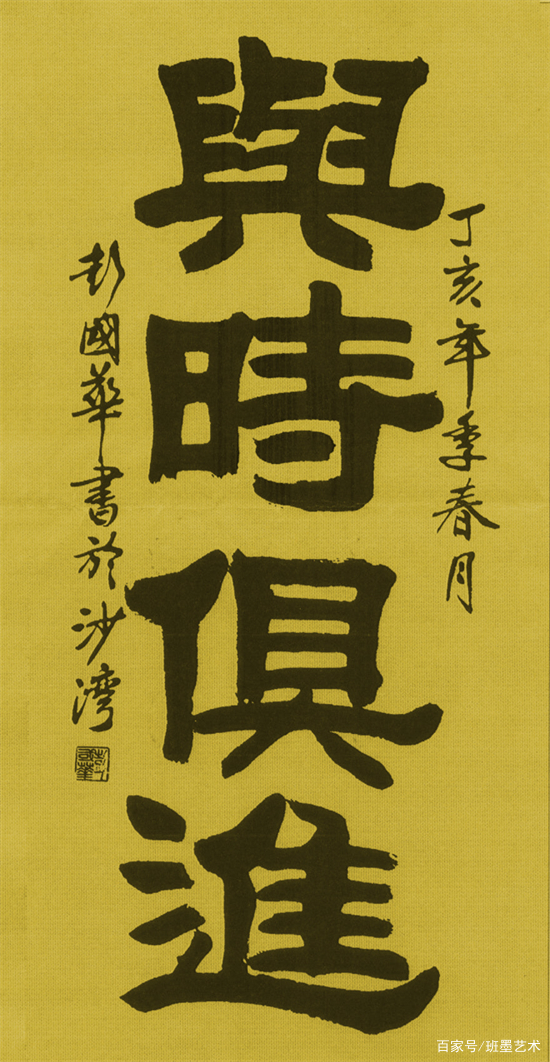 丁亥年季春月
與時俱進
彭國華書於沙灣
彭國華
百家号/班墨艺术